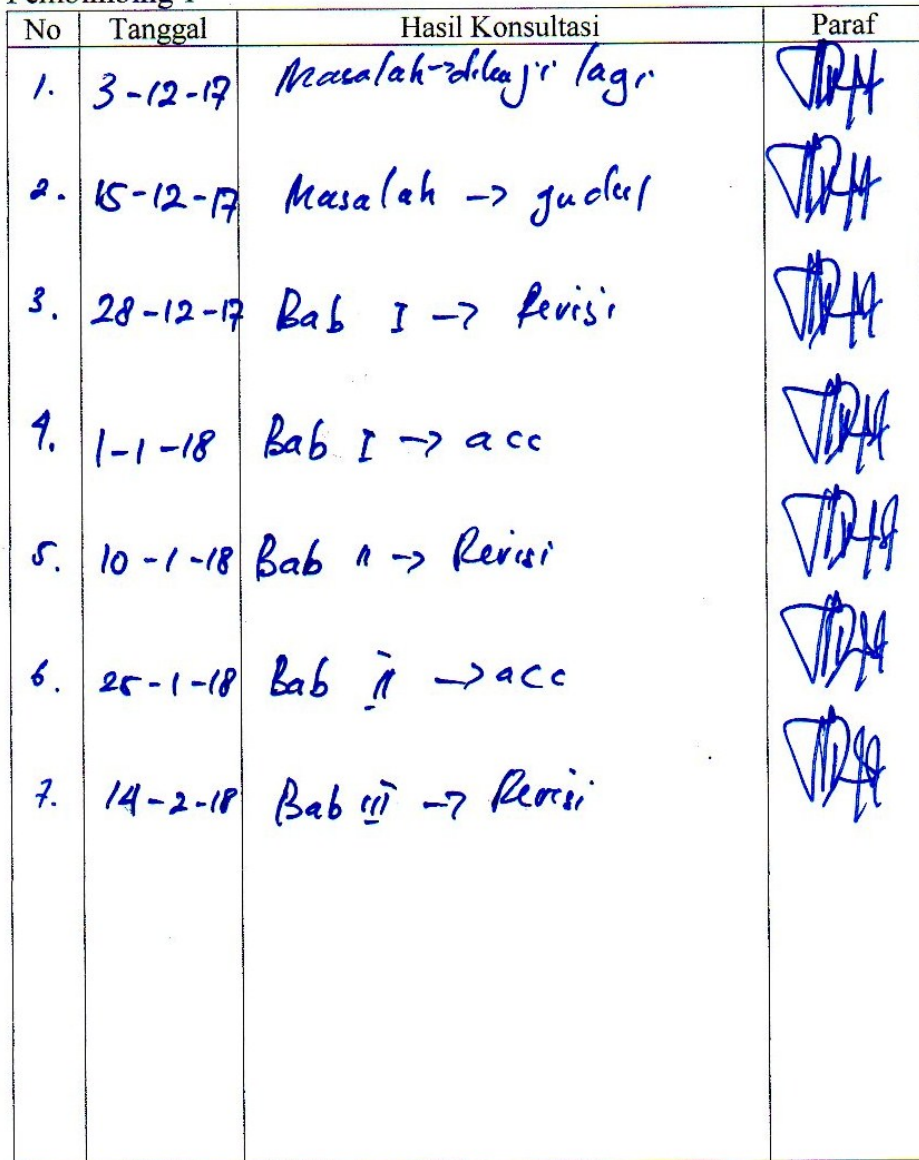 No Tanggal Hasil Konsultasi Paraf
1. 3-12-17 Masalah→dikaji lagi
2. 15-12-17 Masalah → judul
3. 28-12-17 Bab I → Revisi
4. 1-1-18 Bab I → acc
5. 10-1-18 Bab II → Revisi
6. 25-1-18 Bab II → acc
7. 14-2-18 Bab III → Revisi